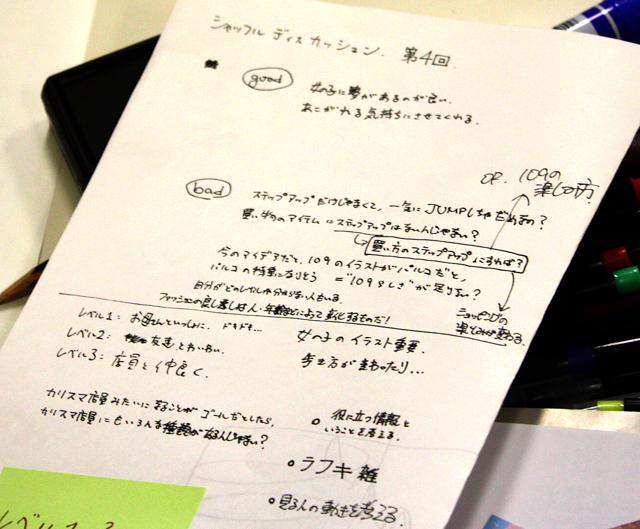 シャッフル ディスカッション. 第4回.
good
女の子に夢があるのが良い.
あこがれる気持ちにさせてくれる.
or. 109の
楽しみ方
bad
ステップアップだけじゃなくて, 一気にJUMPしちゃだめなの?
買い物のアイテムにステップアップはないんじゃない?
買い方のステップアップにすれば?
今のアイデアだと, 109のイラストがパルコだと,
パルコの特集になりそう = "109らしさ"が足りない?
自分がどのレベルか分からない人もいる.
ファッションの良し悪しは人・年齢などによって変化するものだ!
ショッピングの
楽しみが変わる.
レベル1: お母さんといっしょに. ドキドキ...
レベル2: 友達とかわいい.
レベル3: 店員と仲良く.
女の子のイラスト重要.
歩き方が変わったり...
カリスマ店員みたいになることがゴールだとしたら,
カリスマ店員にもいろんな種類があるんじゃない?
役に立つ情報と
いうことを考える.
ラフキ雑
見る人の動きを考える.
レベル